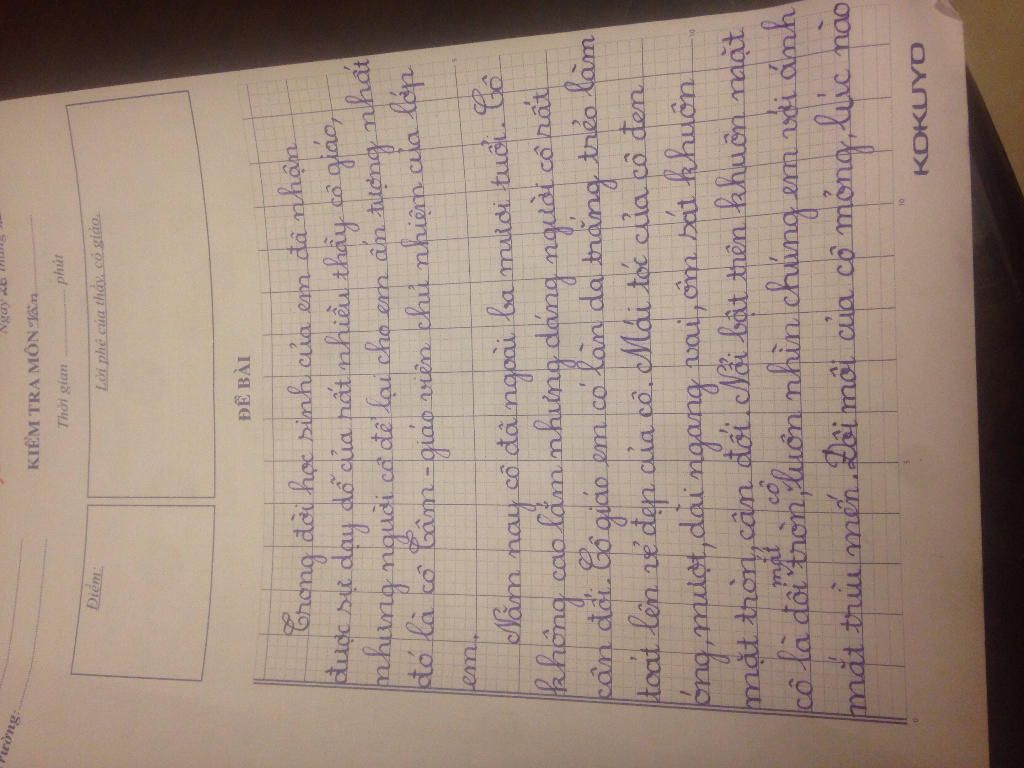 Trường:
Ngày 26 tháng
KIỂM TRA MÔN:
Thời gian phút
Điểm:
Lời phê của thầy, cô giáo.
ĐỀ BÀI
Trong đời học sinh của em đã nhận
được sự dạy dỗ của rất nhiều thầy cô giáo,
nhưng người cô để lại cho em ấn tượng nhất
đó là cô Tâm - giáo viên chủ nhiện của lớp
em.
Năm nay cô đã ngoài ba mươi tuổi. Cô
không cao lắm nhưng dáng người cô rất
cân đối. Cô giáo em có làn da trắng trẻo làm
toát lên vẻ đẹp của cô. Mái tóc của cô đen
óng, mượt, dài ngang vai, ôm sát khuôn
mặt tròn, cân đối. Nổi bật trên khuôn mặt
cô là đôi mắt tròn, cô luôn nhìn chúng em với ánh
mắt trìu mến. Đôi môi của cô mỏng, lúc nào
KOKUYO